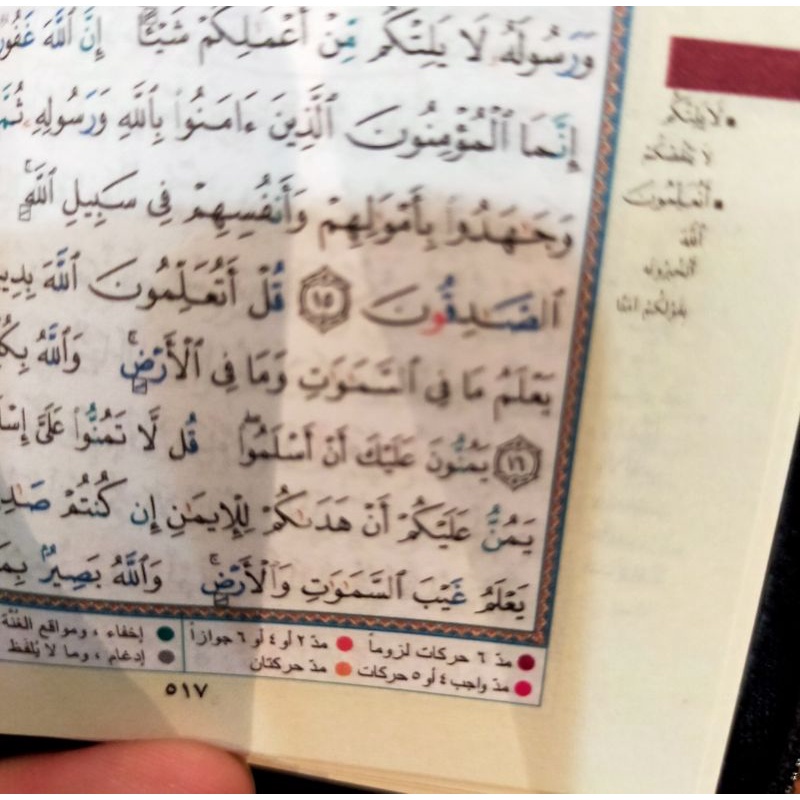 وَرَسُولَهُۥ لَا يَلِتْكُم مِّنْ أَعْمَـٰلِكُمْ شَيْـًٔا ۚ إِنَّ ٱللَّهَ غَفُورٌ
إِنَّمَا ٱلْمُؤْمِنُونَ ٱلَّذِينَ ءَامَنُوا۟ بِٱللَّهِ وَرَسُولِهِۦ ثُمَّ
وَجَـٰهَدُوا۟ بِأَمْوَٰلِهِمْ وَأَنفُسِهِمْ فِى سَبِيلِ ٱللَّهِ ۚ
ٱلصَّـٰدِقُونَ ١٥ قُلْ أَتُعَلِّمُونَ ٱللَّهَ
يَعْلَمُ مَا فِى ٱلسَّمَـٰوَٰتِ وَمَا فِى ٱلْأَرْضِ ۚ وَٱللَّهُ
١٦ يَمُنُّونَ عَلَيْكَ أَنْ أَسْلَمُوا۟ ۖ قُل لَّا تَمُنُّوا۟ عَلَىَّ
يَمُنُّ عَلَيْكُمْ أَنْ هَدَىٰكُمْ لِلْإِيمَـٰنِ إِن كُنتُمْ
يَعْلَمُ غَيْبَ ٱلسَّمَـٰوَٰتِ وَٱلْأَرْضِ ۚ وَٱللَّهُ بَصِيرٌۢ
• لَا يَلِتْكُم
لا ينقصكم
• أَتُعَلِّمُونَ
ٱللَّهَ
أتخبرونه
بقولكم آمنا
مدّ ٦ حركات لزوماً مدّ ٢ أو ٤ أو ٦ جوازاً إخفاء ، ومواقع الغُنَّة
مدّ واجب ٤ أو ٥ حركات مدّ حركتان إدغام ، وما لا يُلفَظ
٥١٧